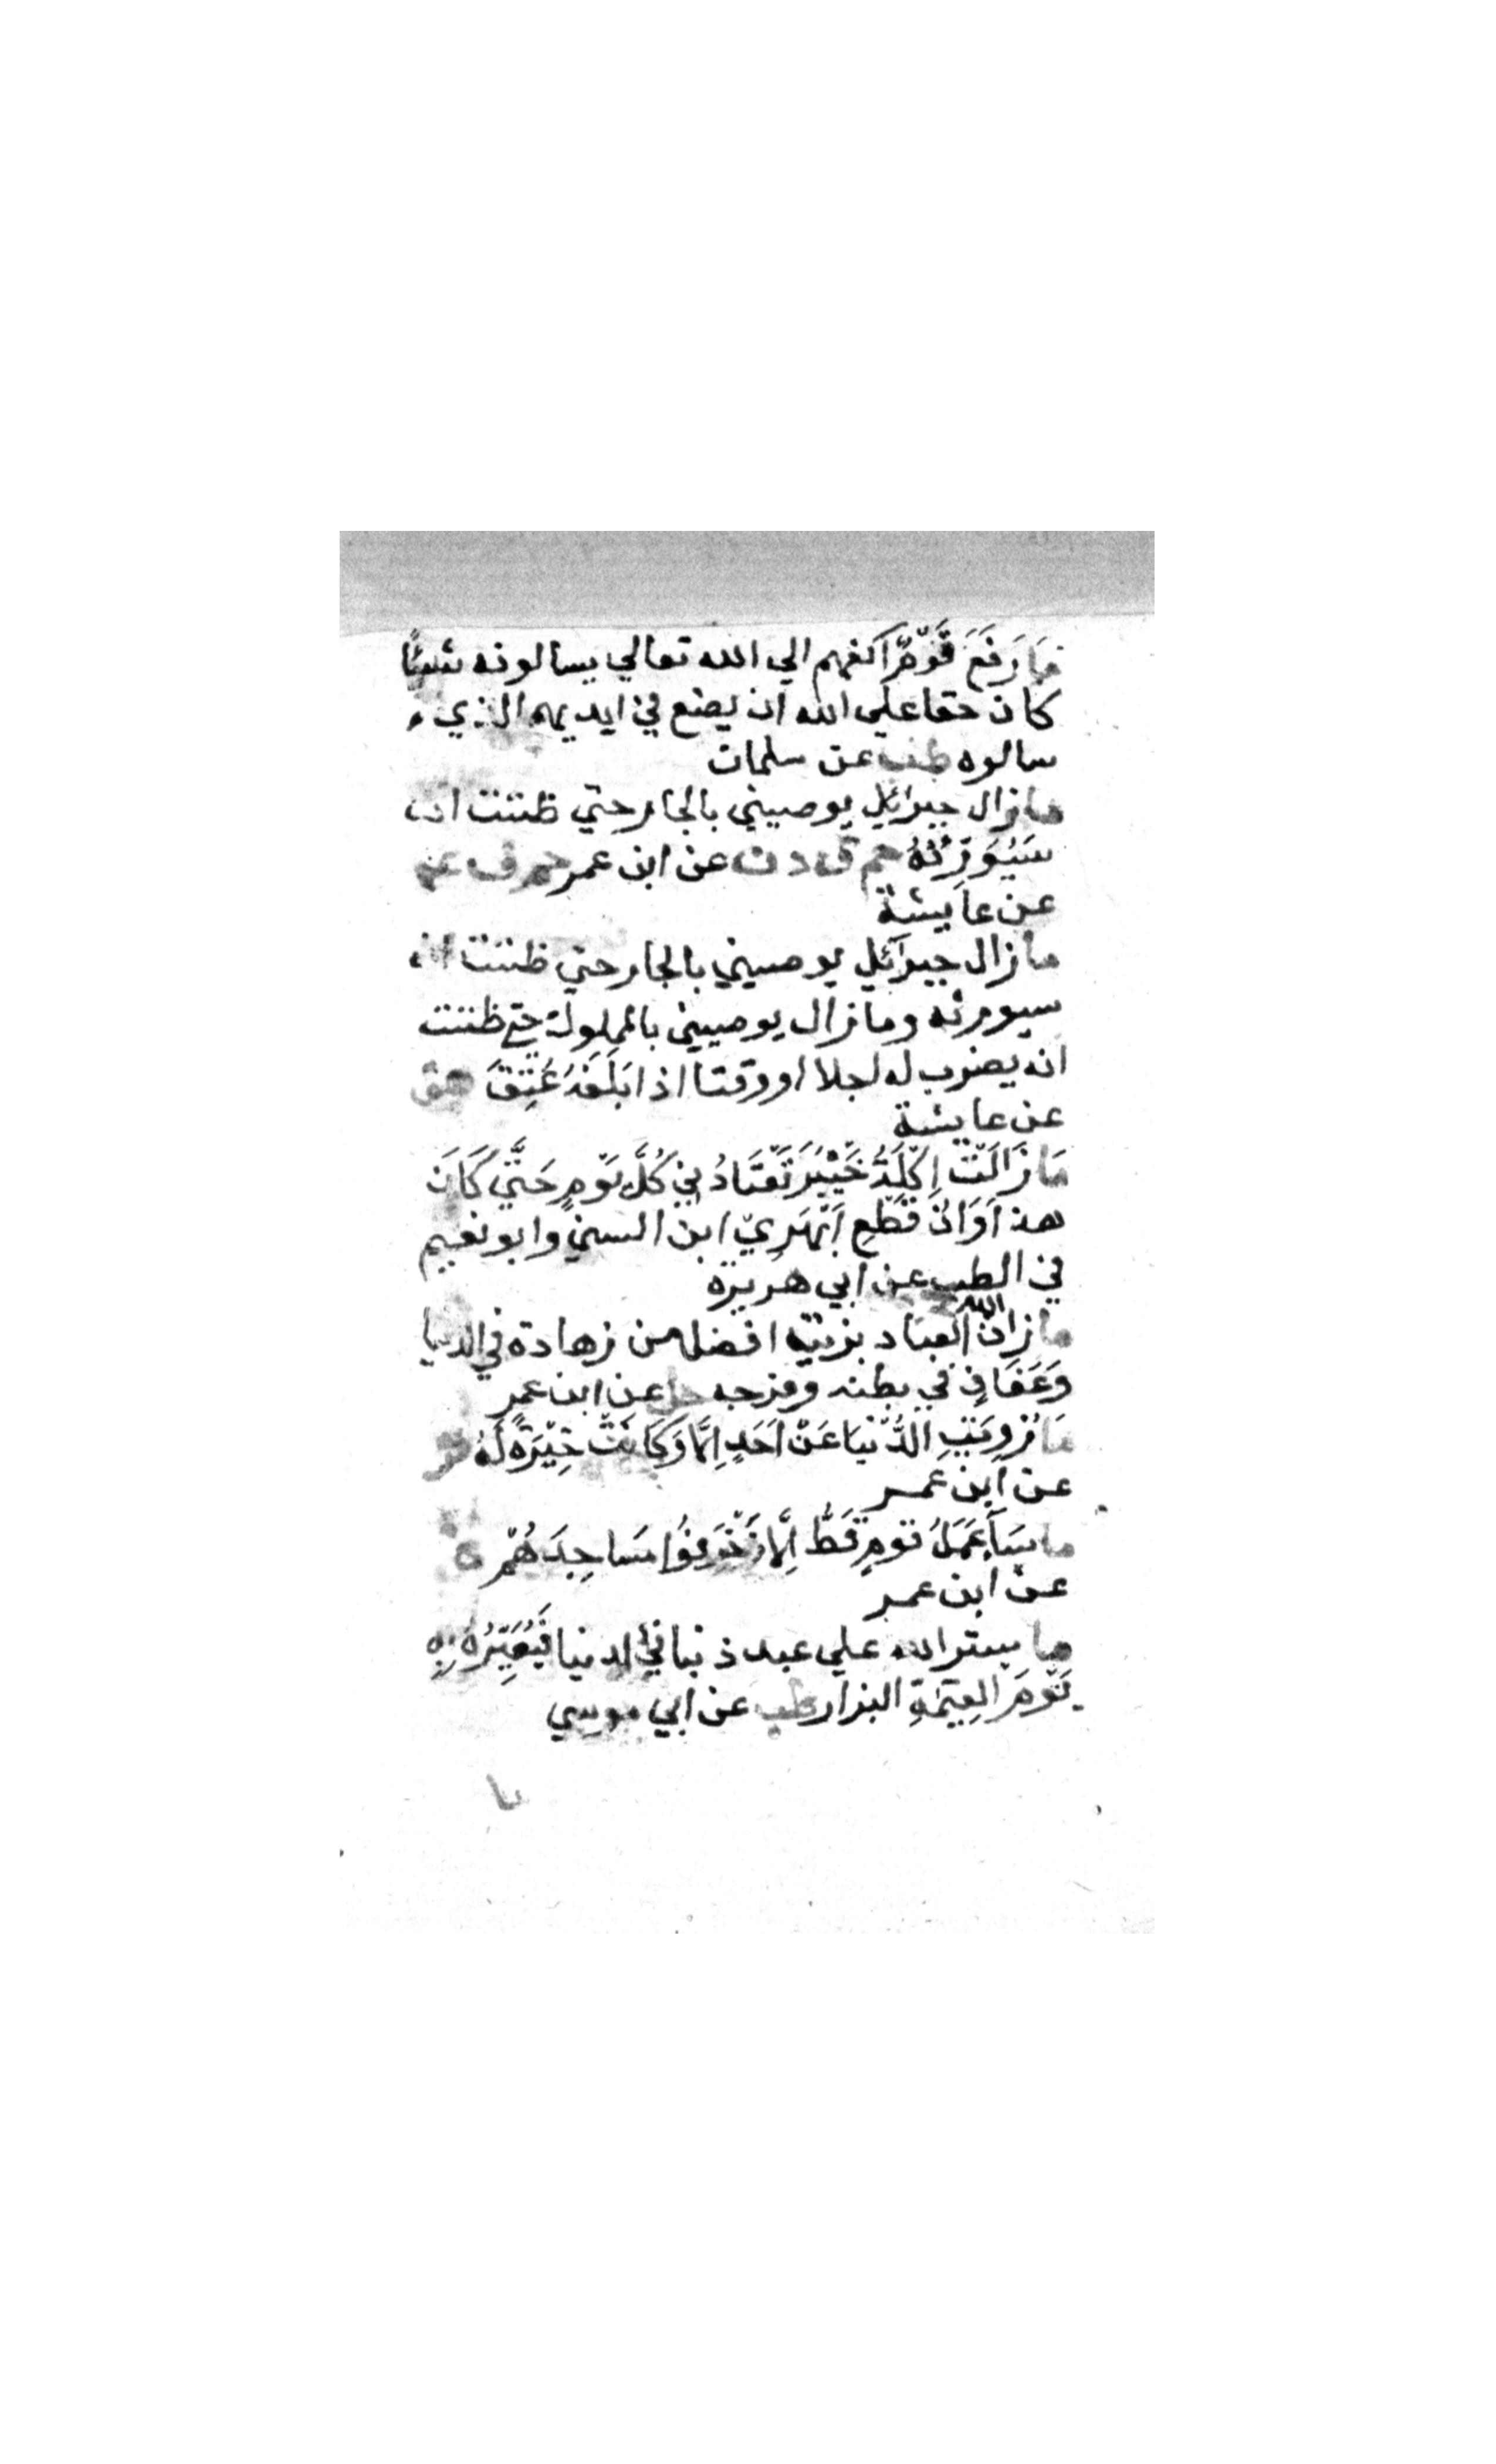 مَا رَفَعَ قَوْمٌ اَكفهم الي الله تعالي يسالونه شَيئًا
كان حقا علي الله ان يضع في ايديهم الذي
سالوه طب عن سلمان
ما زال جبرائيل يوصيني بالجار حتي ظننت انه
سَيُوَرِّثُهُ حم ق د ت عن ابن عمر حم ق عه
عن عايشة
ما زال جبرائيل يوصيني بالجار حتي ظننت انه
سيورثه وما زال يوصيني بالمملوك حتي ظننت
انه يضرب له اجلا او وقتا اذا بَلَغَهُ عُتِقَ هق
عن عايشة
مَا زَالَتْ اِكْلَةُ خَيْبَرَ تَعْتَادُ نِي كُلَّ يَوْمٍ حَتَّي كَانَ
هذا اَوَانُ قَطْعِ اَبْهَرِيْ ابن السني وابو نعيم
في الطب عن ابي هريرة
ما زان الله العباد بزينة افضل من زهادة في الدنيا
وَعَفَافٍ في بطنه وفرجه حل عن ابن عمر
مَا زُوِيَتِ الدُّنْيَا عَنْ اَحَدٍ اِلَّا وَكَانَتْ خِيْرَةً لَهُ فر
عن ابن عمر
ما سَآءَ عَمَلُ قومٍ قَطُّ اِلَّا زَخْرَفُوْا مَسَاجِدَهُمْ ه
عن ابن عمر
ما ستر الله علي عبد ذنبا في الدنيا فَيُعَيِّرُهُ بِهِ
يَوْمَ الْقِيٰمَةِ البزار طب عن ابي موسي
ما